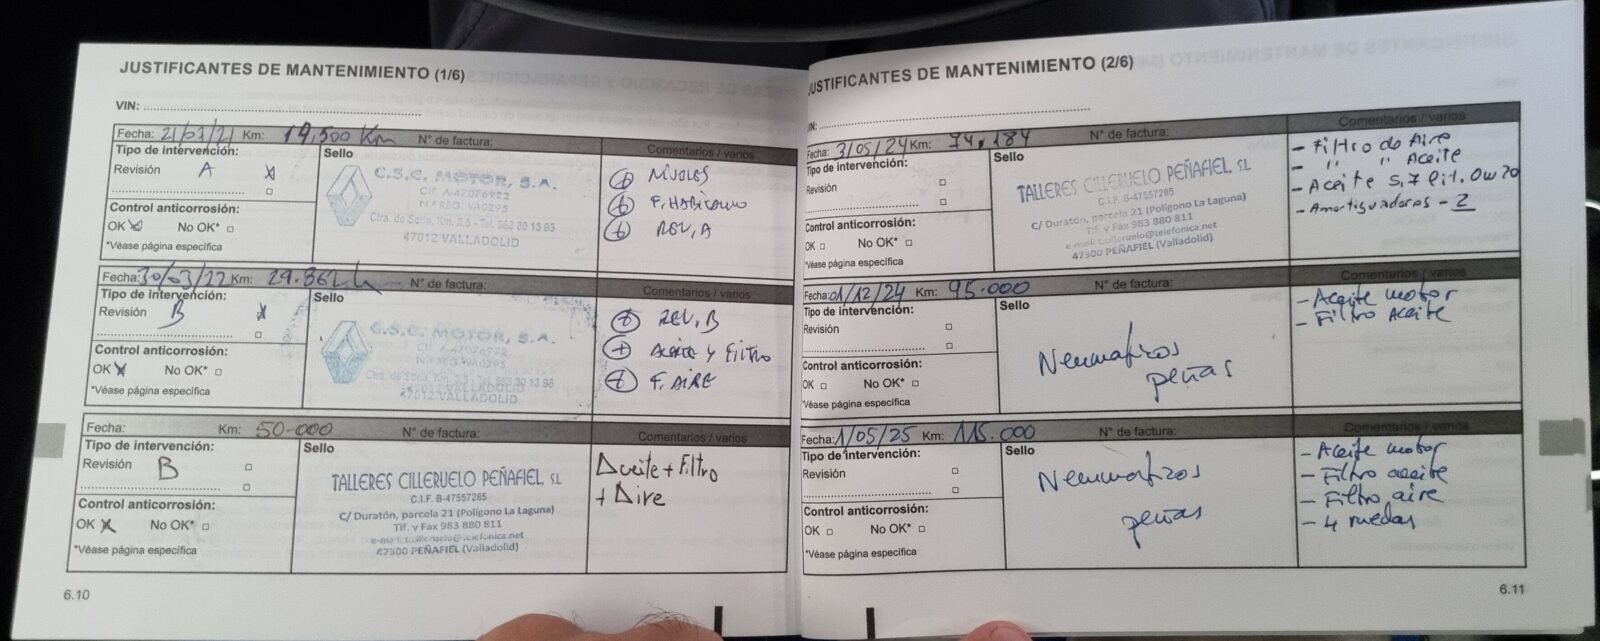 JUSTIFICANTES DE MANTENIMIENTO (1/6)
VIN:
Fecha: 21/01/21 Km: 19,500 Km N° de factura:
Comentarios / varios
Tipo de intervención:
Revisión A
Control anticorrosión:
OK No OK*
*Véase página específica
Sello
C.S.C. MOTOR, S.A.
CIF. A-47076922
N.º REG. VA0295
Ctra. de Soria, Km. 3,5 - Tel. 983 30 13 95
47012 VALLADOLID
F, HABITACULO
REV, A
Fecha: 30/03/22 Km: 29.862 N° de factura:
Comentarios / varios
Tipo de intervención:
Revisión B
Control anticorrosión:
OK No OK*
*Véase página específica
Sello
C.S.C. MOTOR, S.A.
CIF. A-47076922
N.º REG. VA0295
Ctra. de Soria, Km. 3,5 - Tel. 983 30 13 95
47012 VALLADOLID
REV, B
Aceite y Filtro
F. AIRE
Fecha: Km: 50-000 N° de factura:
Comentarios / varios
Tipo de intervención:
Revisión B
Control anticorrosión:
OK No OK*
*Véase página específica
Sello
TALLERES CILLERUELO PEÑAFIEL, SL
C.I.F. B-47557285
C/ Duratón, parcela 21 (Polígono La Laguna)
Tlf. y Fax 983 880 811
e-mail: t.cilleruelo@telefonica.net
47300 PEÑAFIEL (Valladolid)
Aceite + Filtro
+ Aire
6.10
JUSTIFICANTES DE MANTENIMIENTO (2/6)
VIN:
Fecha: 3/05/24 Km: 74,184 N° de factura:
Comentarios / varios
Tipo de intervención:
Revisión
Control anticorrosión:
OK No OK*
*Véase página específica
Sello
TALLERES CILLERUELO PEÑAFIEL, SL
C.I.F. B-47557285
C/ Duratón, parcela 21 (Polígono La Laguna)
Tlf. y Fax 983 880 811
e-mail: t.cilleruelo@telefonica.net
47300 PEÑAFIEL (Valladolid)
- Filtro de Aire
- " " Aceite
- Aceite 5,7 lit. 0w20
- Amortiguadores - 2
Fecha: 01/12/24 Km: 95.000 N° de factura:
Comentarios / varios
Tipo de intervención:
Revisión
Control anticorrosión:
OK No OK*
*Véase página específica
Sello
Neumaticos
peñas
- Aceite motor
- Filtro Aceite
Fecha: 1/05/25 Km: 115.000 N° de factura:
Comentarios / varios
Tipo de intervención:
Revisión
Control anticorrosión:
OK No OK*
*Véase página específica
Sello
Neumaticos
peñas
- Aceite motor
- Filtro aceite
- Filtro aire
- 4 ruedas
6.11